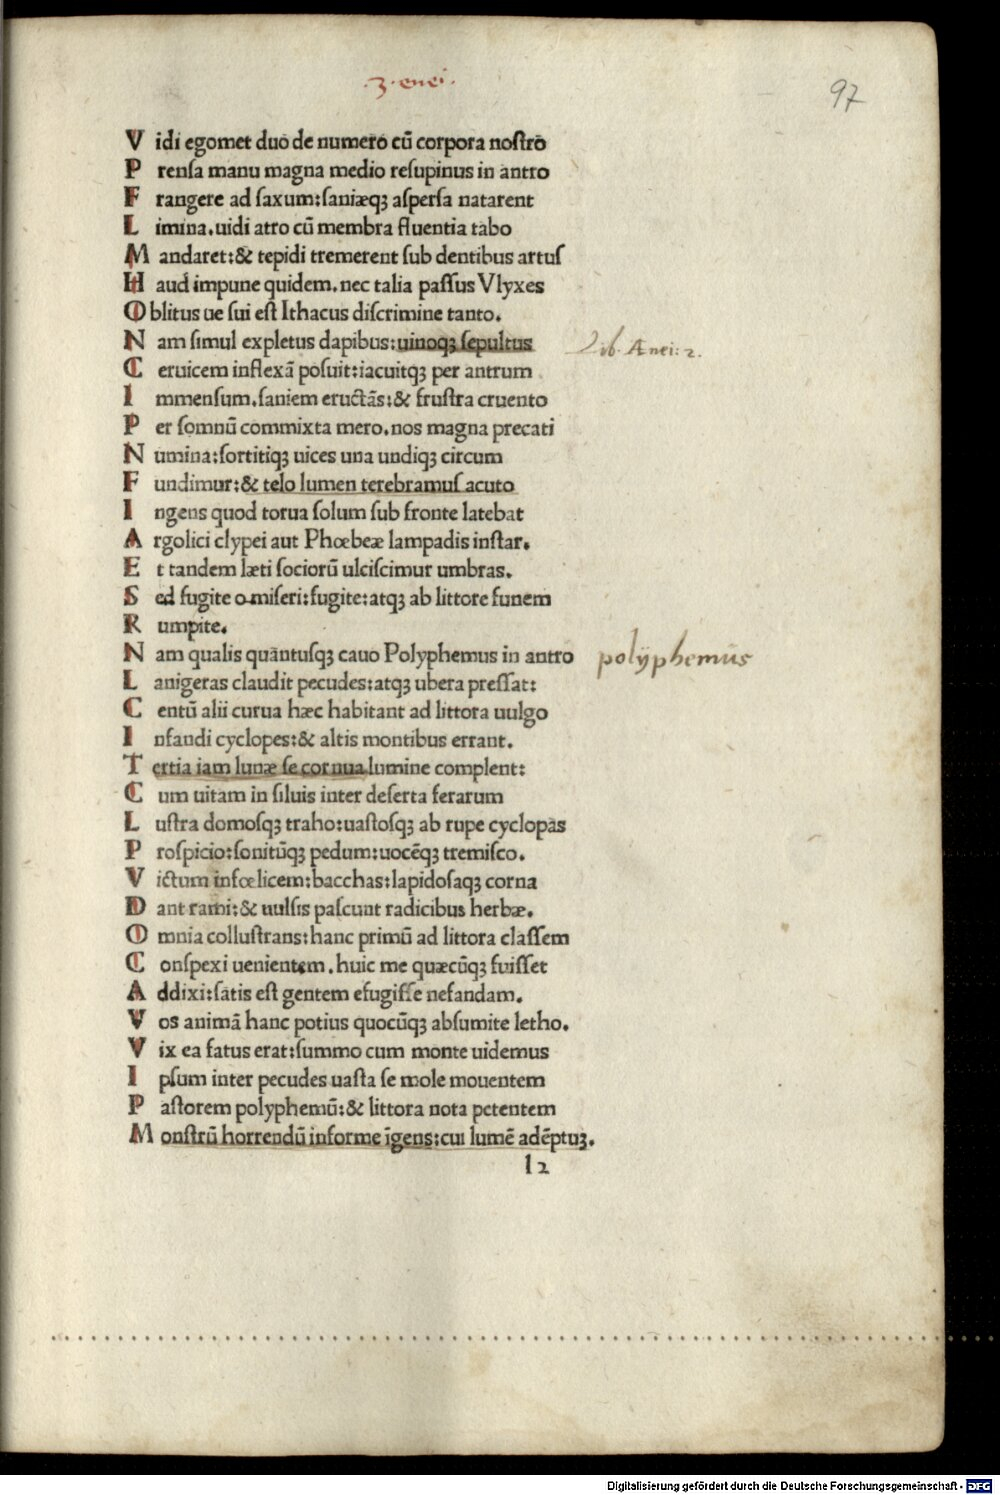 ·3· enei·
97
Vidi egomet duo de numero cū corpora nostro
Prensa manu magna medio resupinus in antro
Frangere ad saxum:saniæqꝫ aspersa natarent
Limina.uidi atro cū membra fluentia tabo
Mandaret:& tepidi tremerent sub dentibus artus
Haud impune quidem.nec talia passus Vlyxes
Oblitus ue sui est Ithacus discrimine tanto.
Nam simul expletus dapibus:uinoqꝫ sepultus
Lib. Ænei: 2.
Ceruicem inflexā posuit:iacuitqꝫ per antrum
Immensum.saniem eructās:& frustra cruento
Per somnū commixta mero.nos magna precati
Numina:sortitiqꝫ uices una undiqꝫ circum
Fundimur:& telo lumen terebramus acuto
Ingens quod torua solum sub fronte latebat
Argolici clypei aut Phœbeæ lampadis instar.
Et tandem læti sociorū ulciscimur umbras.
Sed fugite o miseri:fugite:atqꝫ ab littore funem
Rumpite.
Nam qualis quāntusqꝫ cauo Polyphemus in antro
polÿphemus
Lanigeras claudit pecudes:atqꝫ ubera pressat:
Centū alii curua hæc habitant ad littora uulgo
Infandi cyclopes:& altis montibus errant.
Tertia iam lunæ se cornua lumine complent:
Cum uitam in siluis inter deserta ferarum
Lustra domosqꝫ traho:uastosqꝫ ab rupe cyclopas
Prospicio:sonitūqꝫ pedum:uocēqꝫ tremisco.
Victum infœlicem:bacchas:lapidosaqꝫ corna
Dant rami:& uulsis pascunt radicibus herbæ.
Omnia collustrans:hanc primū ad littora classem
Conspexi uenientem.huic me quæcūqꝫ fuisset
Addixi:satis est gentem efugisse nefandam.
Vos animā hanc potius quocūqꝫ absumite letho.
Vix ea fatus erat:summo cum monte uidemus
Ipsum inter pecudes uasta se mole mouentem
Pastorem polyphemū:& littora nota petentem
Monstrū horrendū informe īgens:cui lumē adēptuꝫ.
l 2
Digitalisierung gefördert durch die Deutsche Forschungsgemeinschaft - DFG